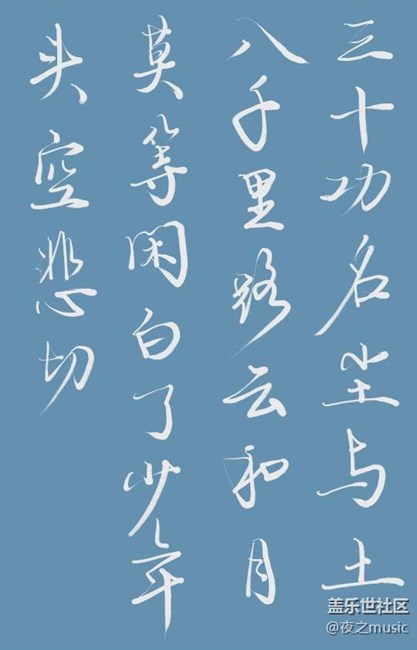 三十功名尘与土
八千里路云和月
莫等闲白了少年
头空悲切
盖乐世社区
@夜之music